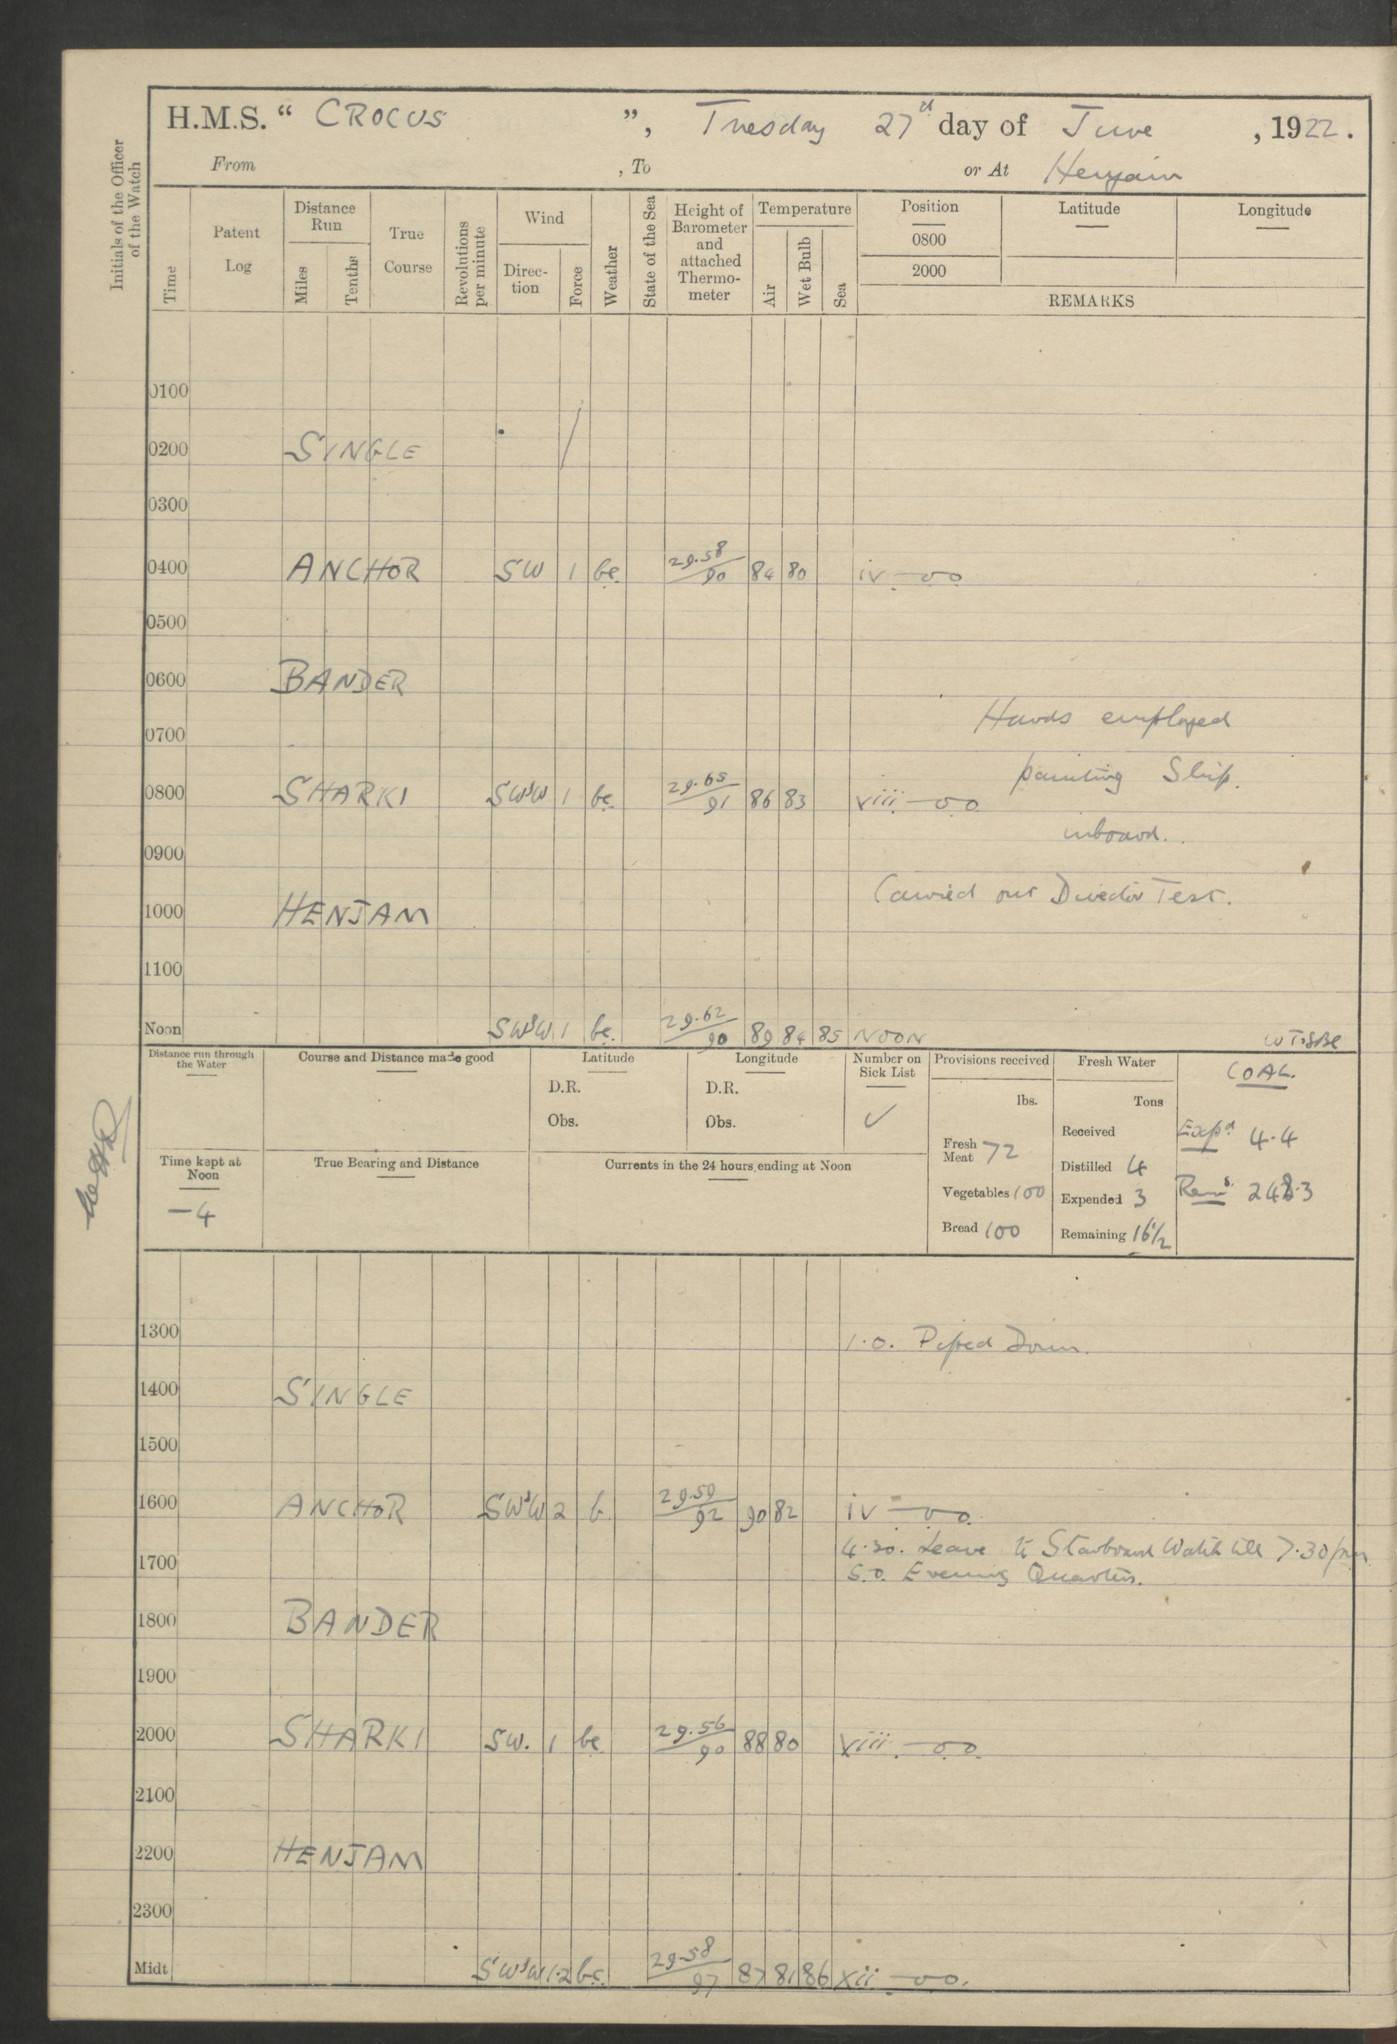 H.M.S. “ CROCUS ”, Tuesday 27 day of June , 1922.
From , To or At Henjam
Initials of the Officer of the Watch
Time
Patent Log
Distance Run
Miles
Tenths
True Course
Revolutions per minute
Wind
Direc-tion
Force
Weather
State of the Sea
Height of Barometer and attached Thermo-meter
Temperature
Air
Wet Bulb
Sea
Position
Latitude
Longitude
0800
2000
REMARKS
0100
0200 SINGLE
0300
0400 ANCHOR SW 1 bc. 29.58/90 84 80 iv — oo
0500
0600 BANDER
Hands employed
0700
painting Ship.
0800 SHARKI SW'W 1 bc. 29.65/91 86 83 viii — oo
inboard.
0900
Carried out Director Test.
1000 HENJAM
1100
Noon SW'W. 1 bc. 29.62/90 89 84 85 NOON
Distance run through the Water
Course and Distance made good
Latitude
D.R.
Obs.
Longitude
D.R.
Obs.
Number on Sick List
✓
Provisions received
lbs.
Fresh Meat 72
Vegetables 100
Bread 100
Fresh Water
Tons
Received
Distilled 4
Expended 3
Remaining 16½
COAL.
Expd 4.4
Rem 248.3
Time kept at Noon
-4
True Bearing and Distance
Currents in the 24 hours ending at Noon
1300 1.0. Piped Down.
1400 SINGLE
1500
1600 ANCHOR SW'W 2 b. 29.59/92 90 82 iv — oo.
4.30. Leave to Starboard Watch till 7.30 pm
1700
5.0. Evening Quarters.
1800 BANDER
1900
2000 SHARKI SW. 1 bc 29.56/90 88 80 viii — oo.
2100
2200 HENJAM
2300
Midt SW'W 1.2 bc. 29.58/97 87 81 86 xii — oo.